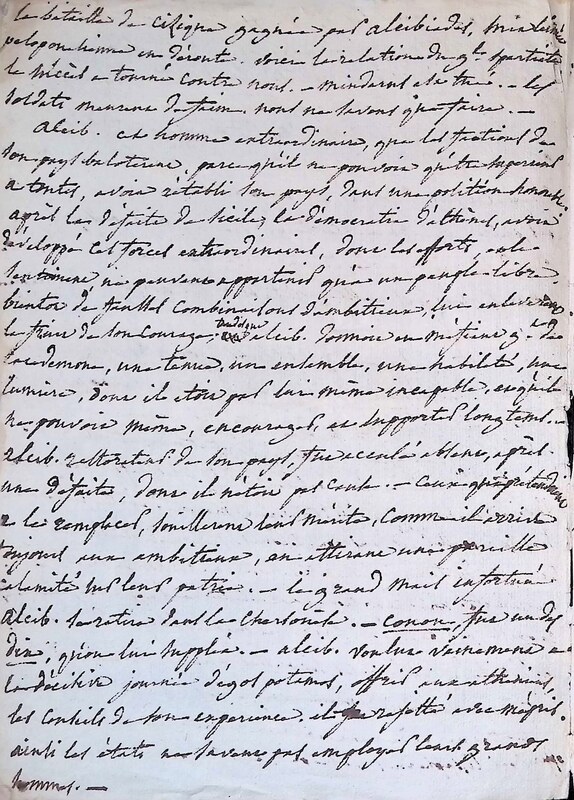 la bataille de Cizique gagnée par alcibiades, mis le
peloponnese en déroute. voici la relation du gl. spartiate
le succès a tourné contre nous. — mindarus a été tué. — les
soldats meurent de faim. nous ne savons que faire. —
alcib. cet homme extraordinaire, que les factions de
son pays baloterent, parce qu'il ne pouvoit qu'être superieur
a toutes, avoit rétabli son pays, dans une position honorable
après la défaite de Sicile, la démocratie d'athènes, avoit
développé ces forces extraordinaires, dont les efforts,
ne peuvent appartenir qu'a un peuple libre,
bientot de fausses combinaisons d'ambitieux, lui enleverent
le fruit de son courage, alcib. donnoit en
lacedemone, une tenue, un ensemble, une habilité, une
lumiere, dont il étoit pas lui même incapable, et qu'il
ne pouvoit même, encourager, et supporter longtems. —
alcib. de son pays, fut accusé absent, après
une défaite, dont il n'étoit pas cause. — ceux qui prétendirent
a le remplacer, souillerent leur mérite, comme il arrive
toujours aux ambitieux, en attirant une pareille
calamité sur leur patrie. — le grand mais infortuné
alcib. se retire dans la Chersonèse. — conon, fut un des
dix, qu'on lui suppléa. — alcib. voulut vainement a
la décisive journée d'égos potamos, offrir aux atheniens,
les conseils de son experience. il fut rejetté avec mépris.
ainsi les états ne savent pas employer leurs grands
hommes. —